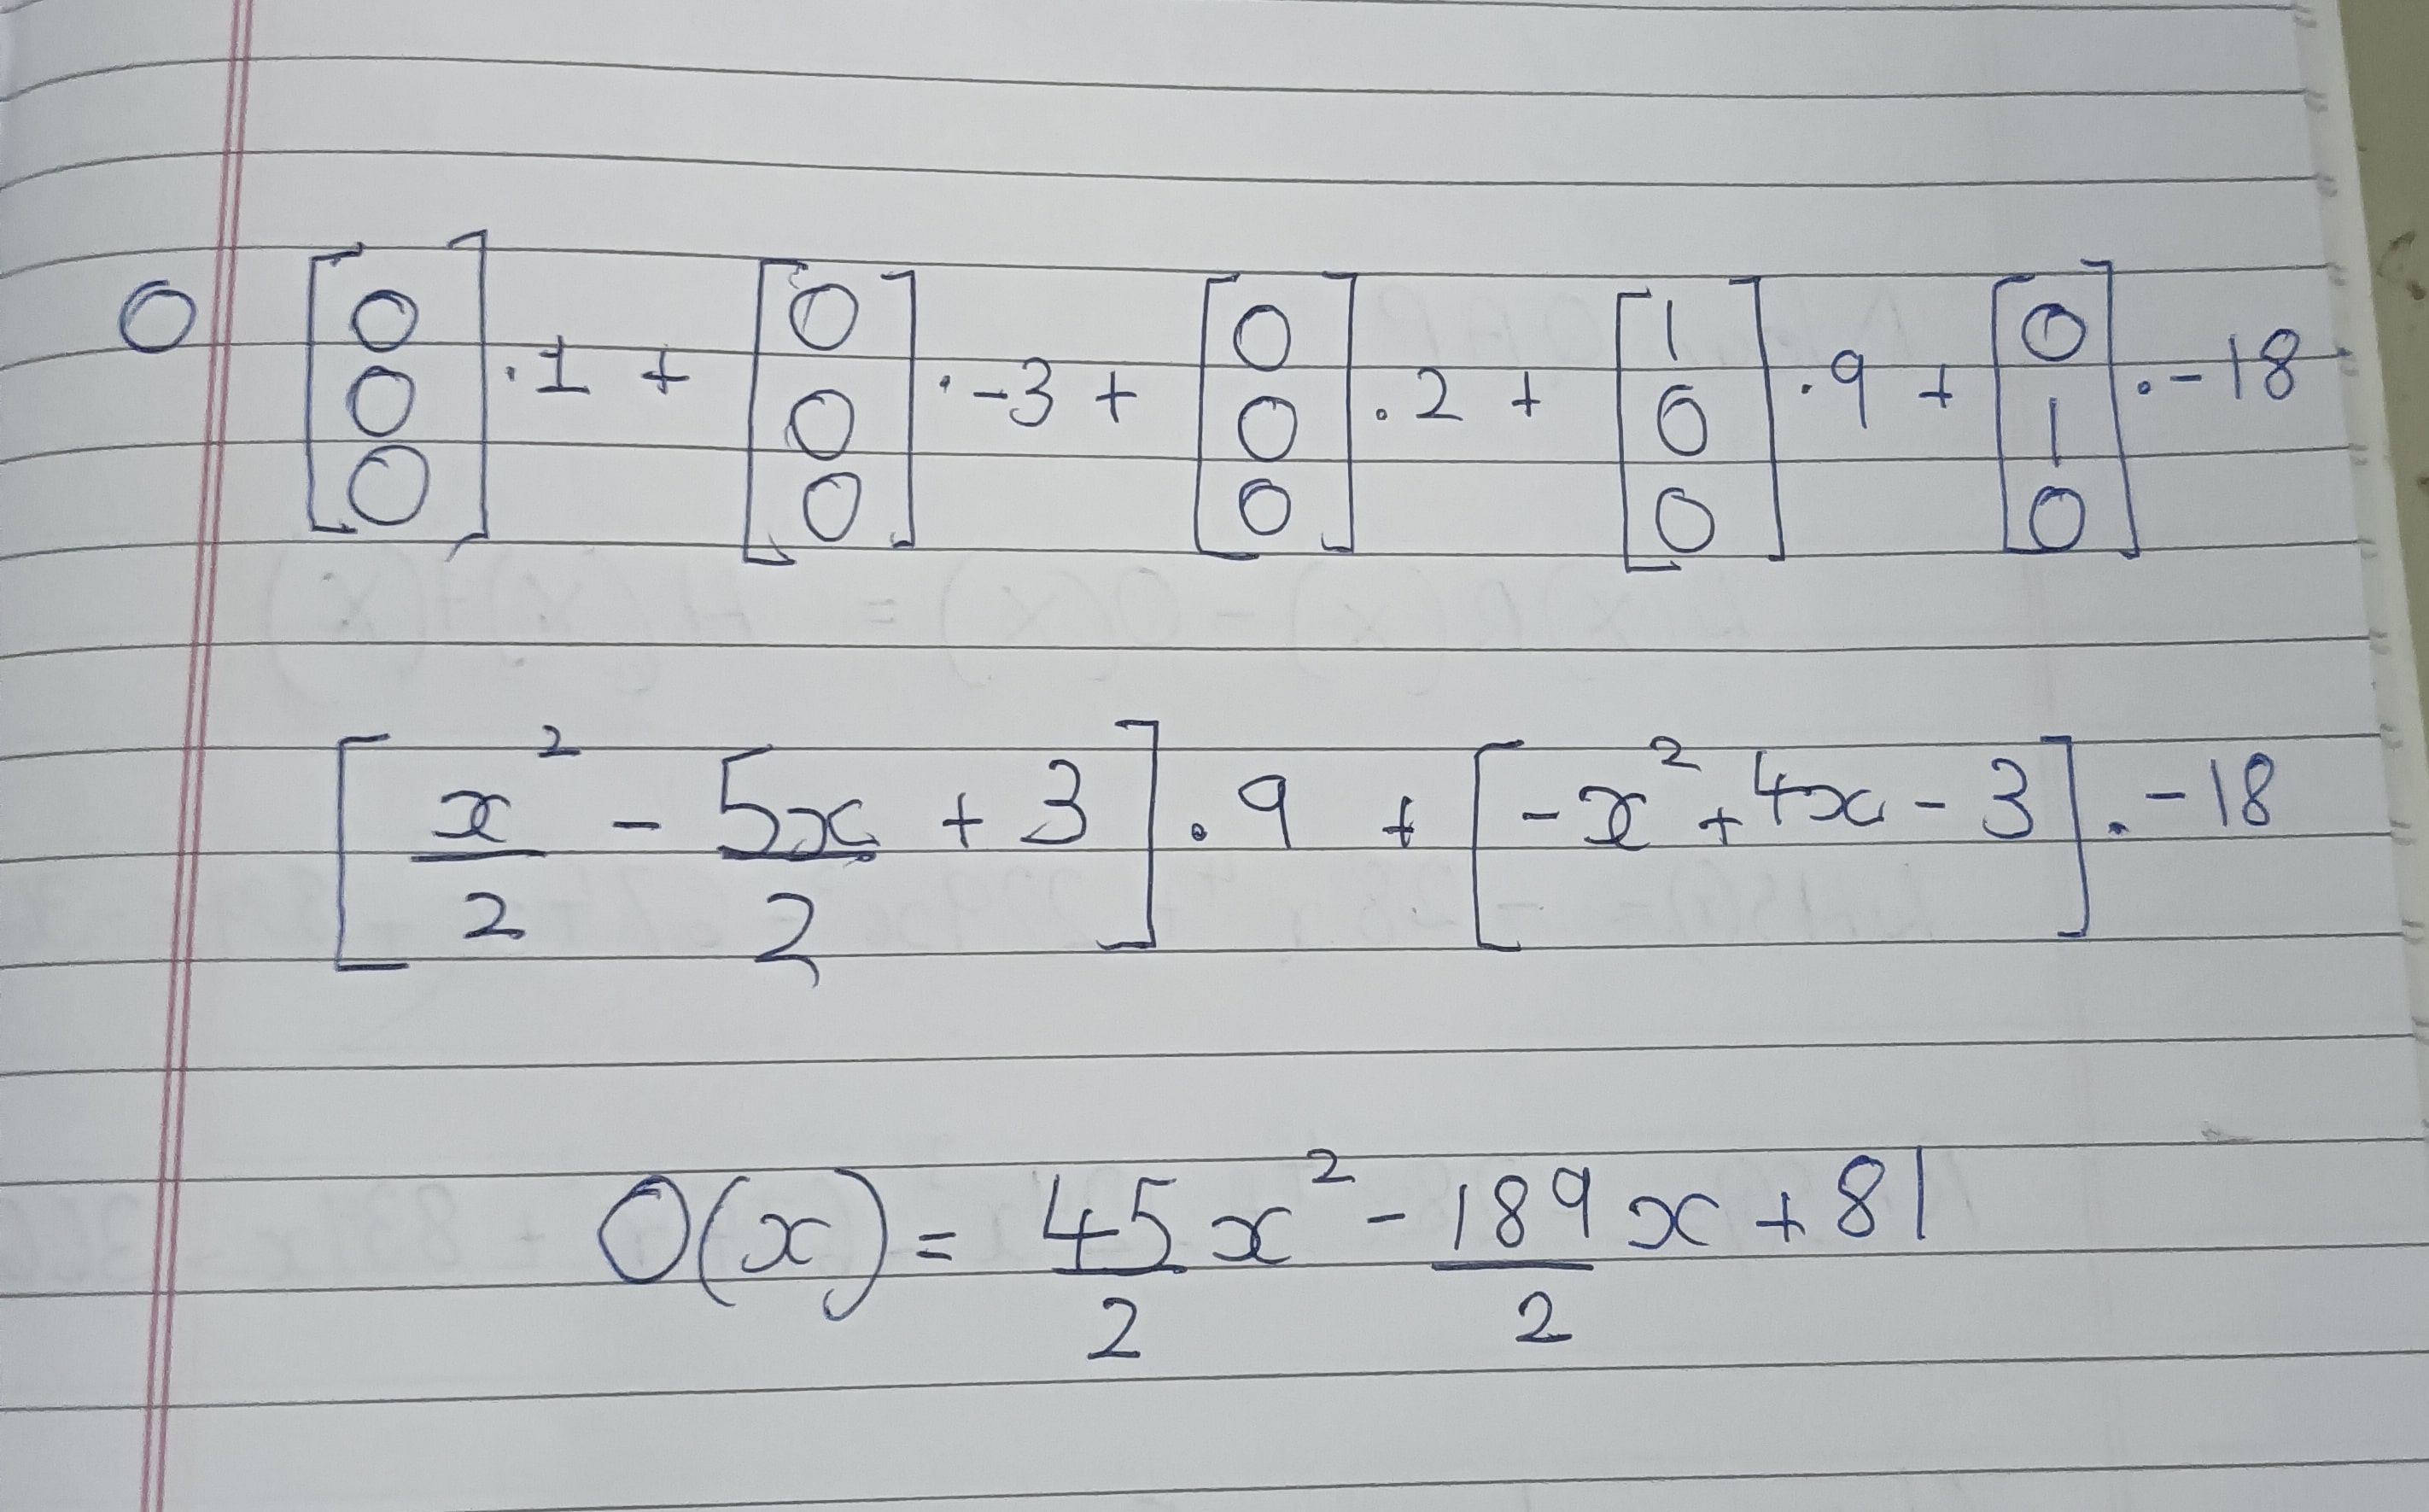 O [0 0 0] . 1 + [0 0 0] . -3 + [0 0 0] . 2 + [1 0 0] . 9 + [0 1 0] . -18
[x²/2 - 5x/2 + 3] . 9 + [-x² + 4x - 3] . -18
O(x) = 45/2 x² - 189/2 x + 81